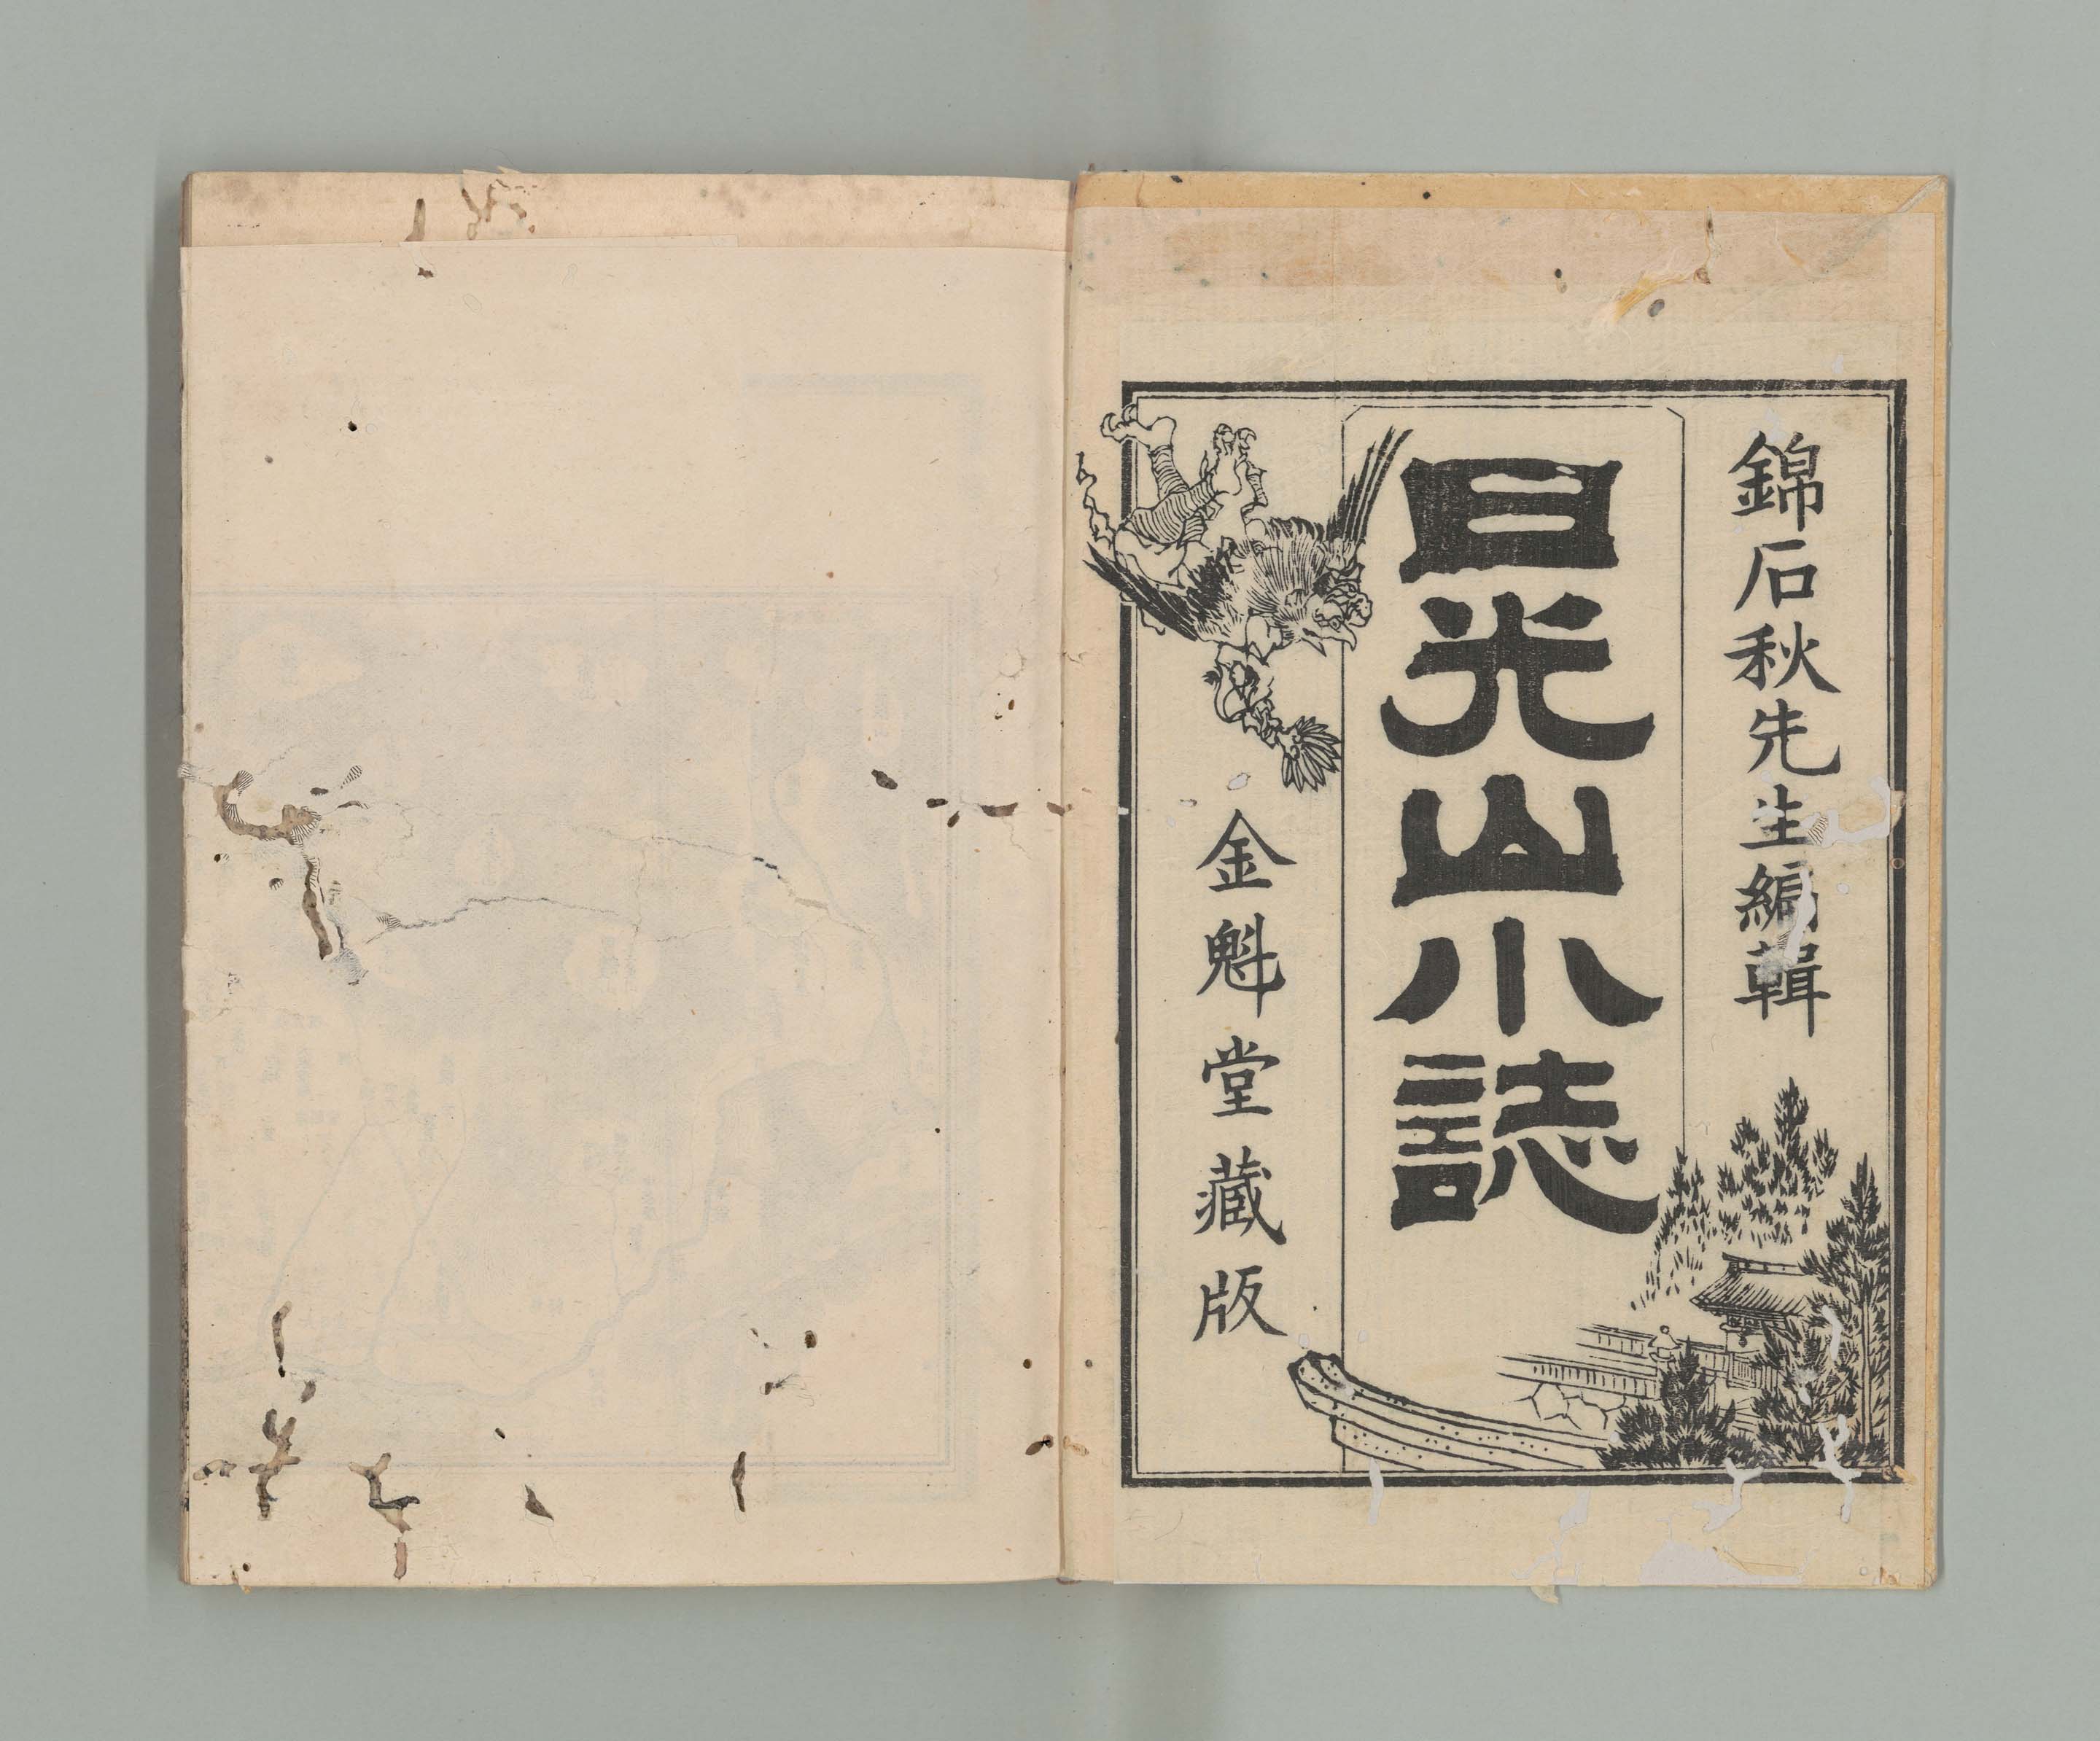 錦石秋先生編輯
日光山小誌
金魁堂藏版